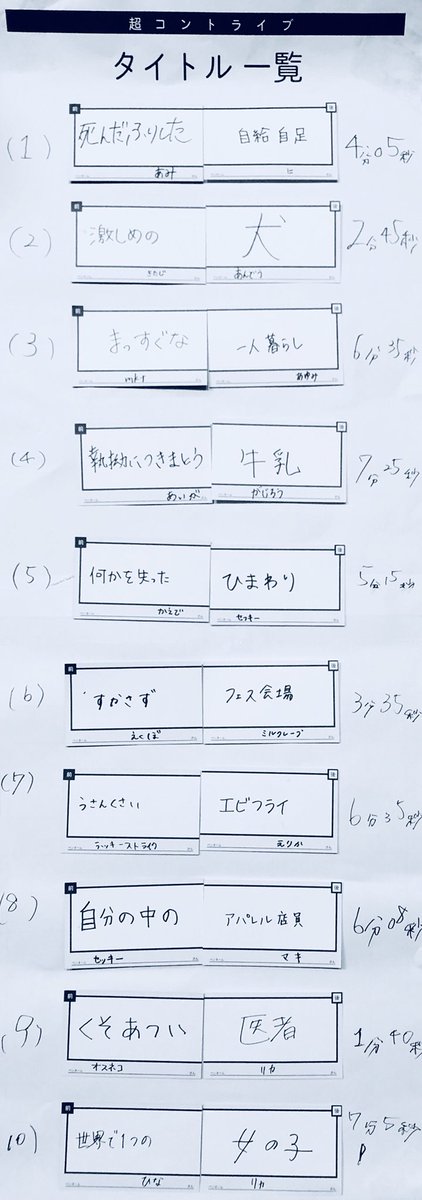 超コントライブ
タイトル一覧
(1) 前 死んだふりした 後 自給自足 4分05秒
あみ に
(2) 前 激しめの 後 犬 2分45秒
きたじ あんどう
(3) 前 まっすぐな 後 一人暮らし 6分35秒
あゆみ
(4) 前 執拗につきまとう 後 牛乳 7分25秒
あいが がじろう
(5) 前 何かを失った 後 ひまわり 5分15秒
かえで セッキー
(6) 前 すかさず 後 フェス会場 3分35秒
えくぼ ミルクレープ
(7) 前 うさんくさい 後 エビフライ 6分35秒
ラッキーストライク えりか
(8) 前 自分の中の 後 アパレル店員 6分08秒
セッキー マキ
(9) 前 くそあつい 後 医者 1分40秒
オスネコ リカ
10) 前 世界で1つの 後 女の子 7分5秒
ひな リカ